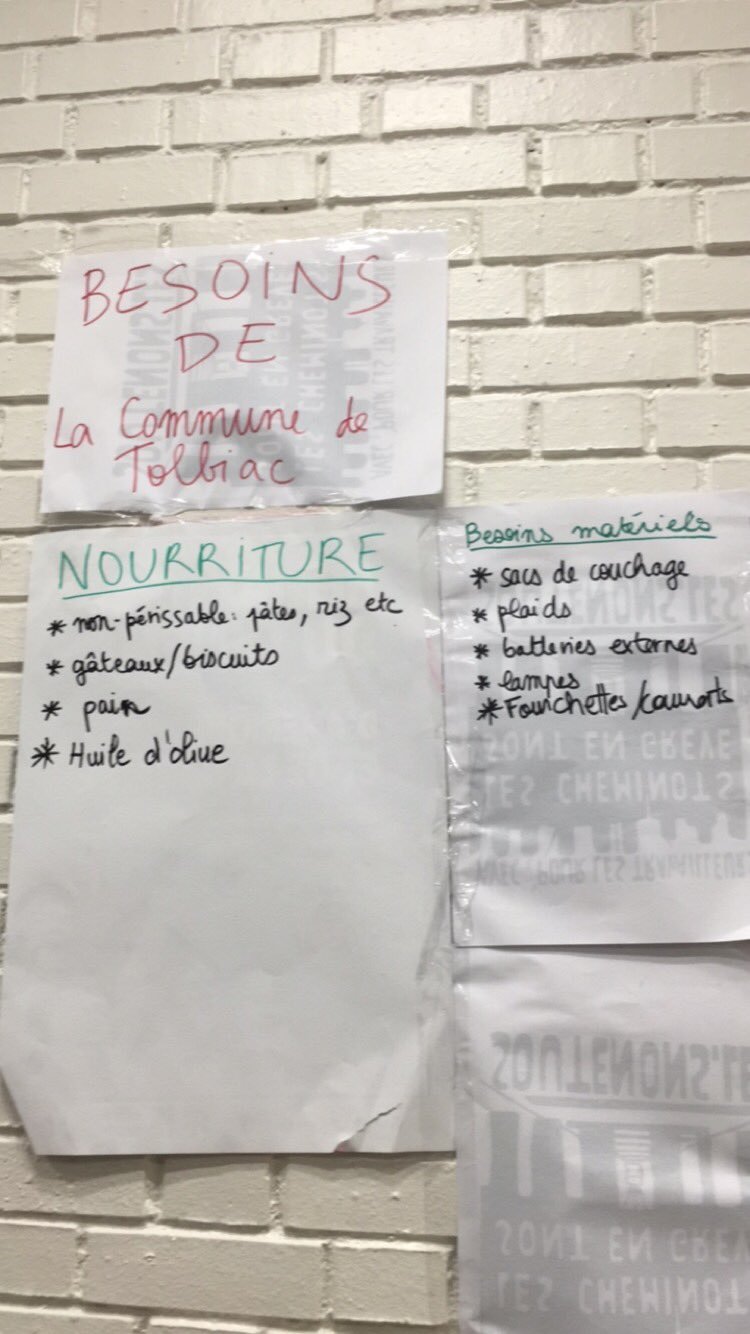 BESOINS
DE
La Commune de
Tolbiac
NOURRITURE
* non-périssable: pâtes, riz etc
* gâteaux/biscuits
* pain
* Huile d'olive
Besoins matériels
* sacs de couchage
* plaids
* batteries externes
* lampes
* Fourchettes /couverts
SOUTENONS LES
SONT EN GREVE
LES CHEMINOTS
AVEC, POUR LES TRAVAILLEUR
SOUTENONS.LE
SONT EN GREV
LES CHEMINOT